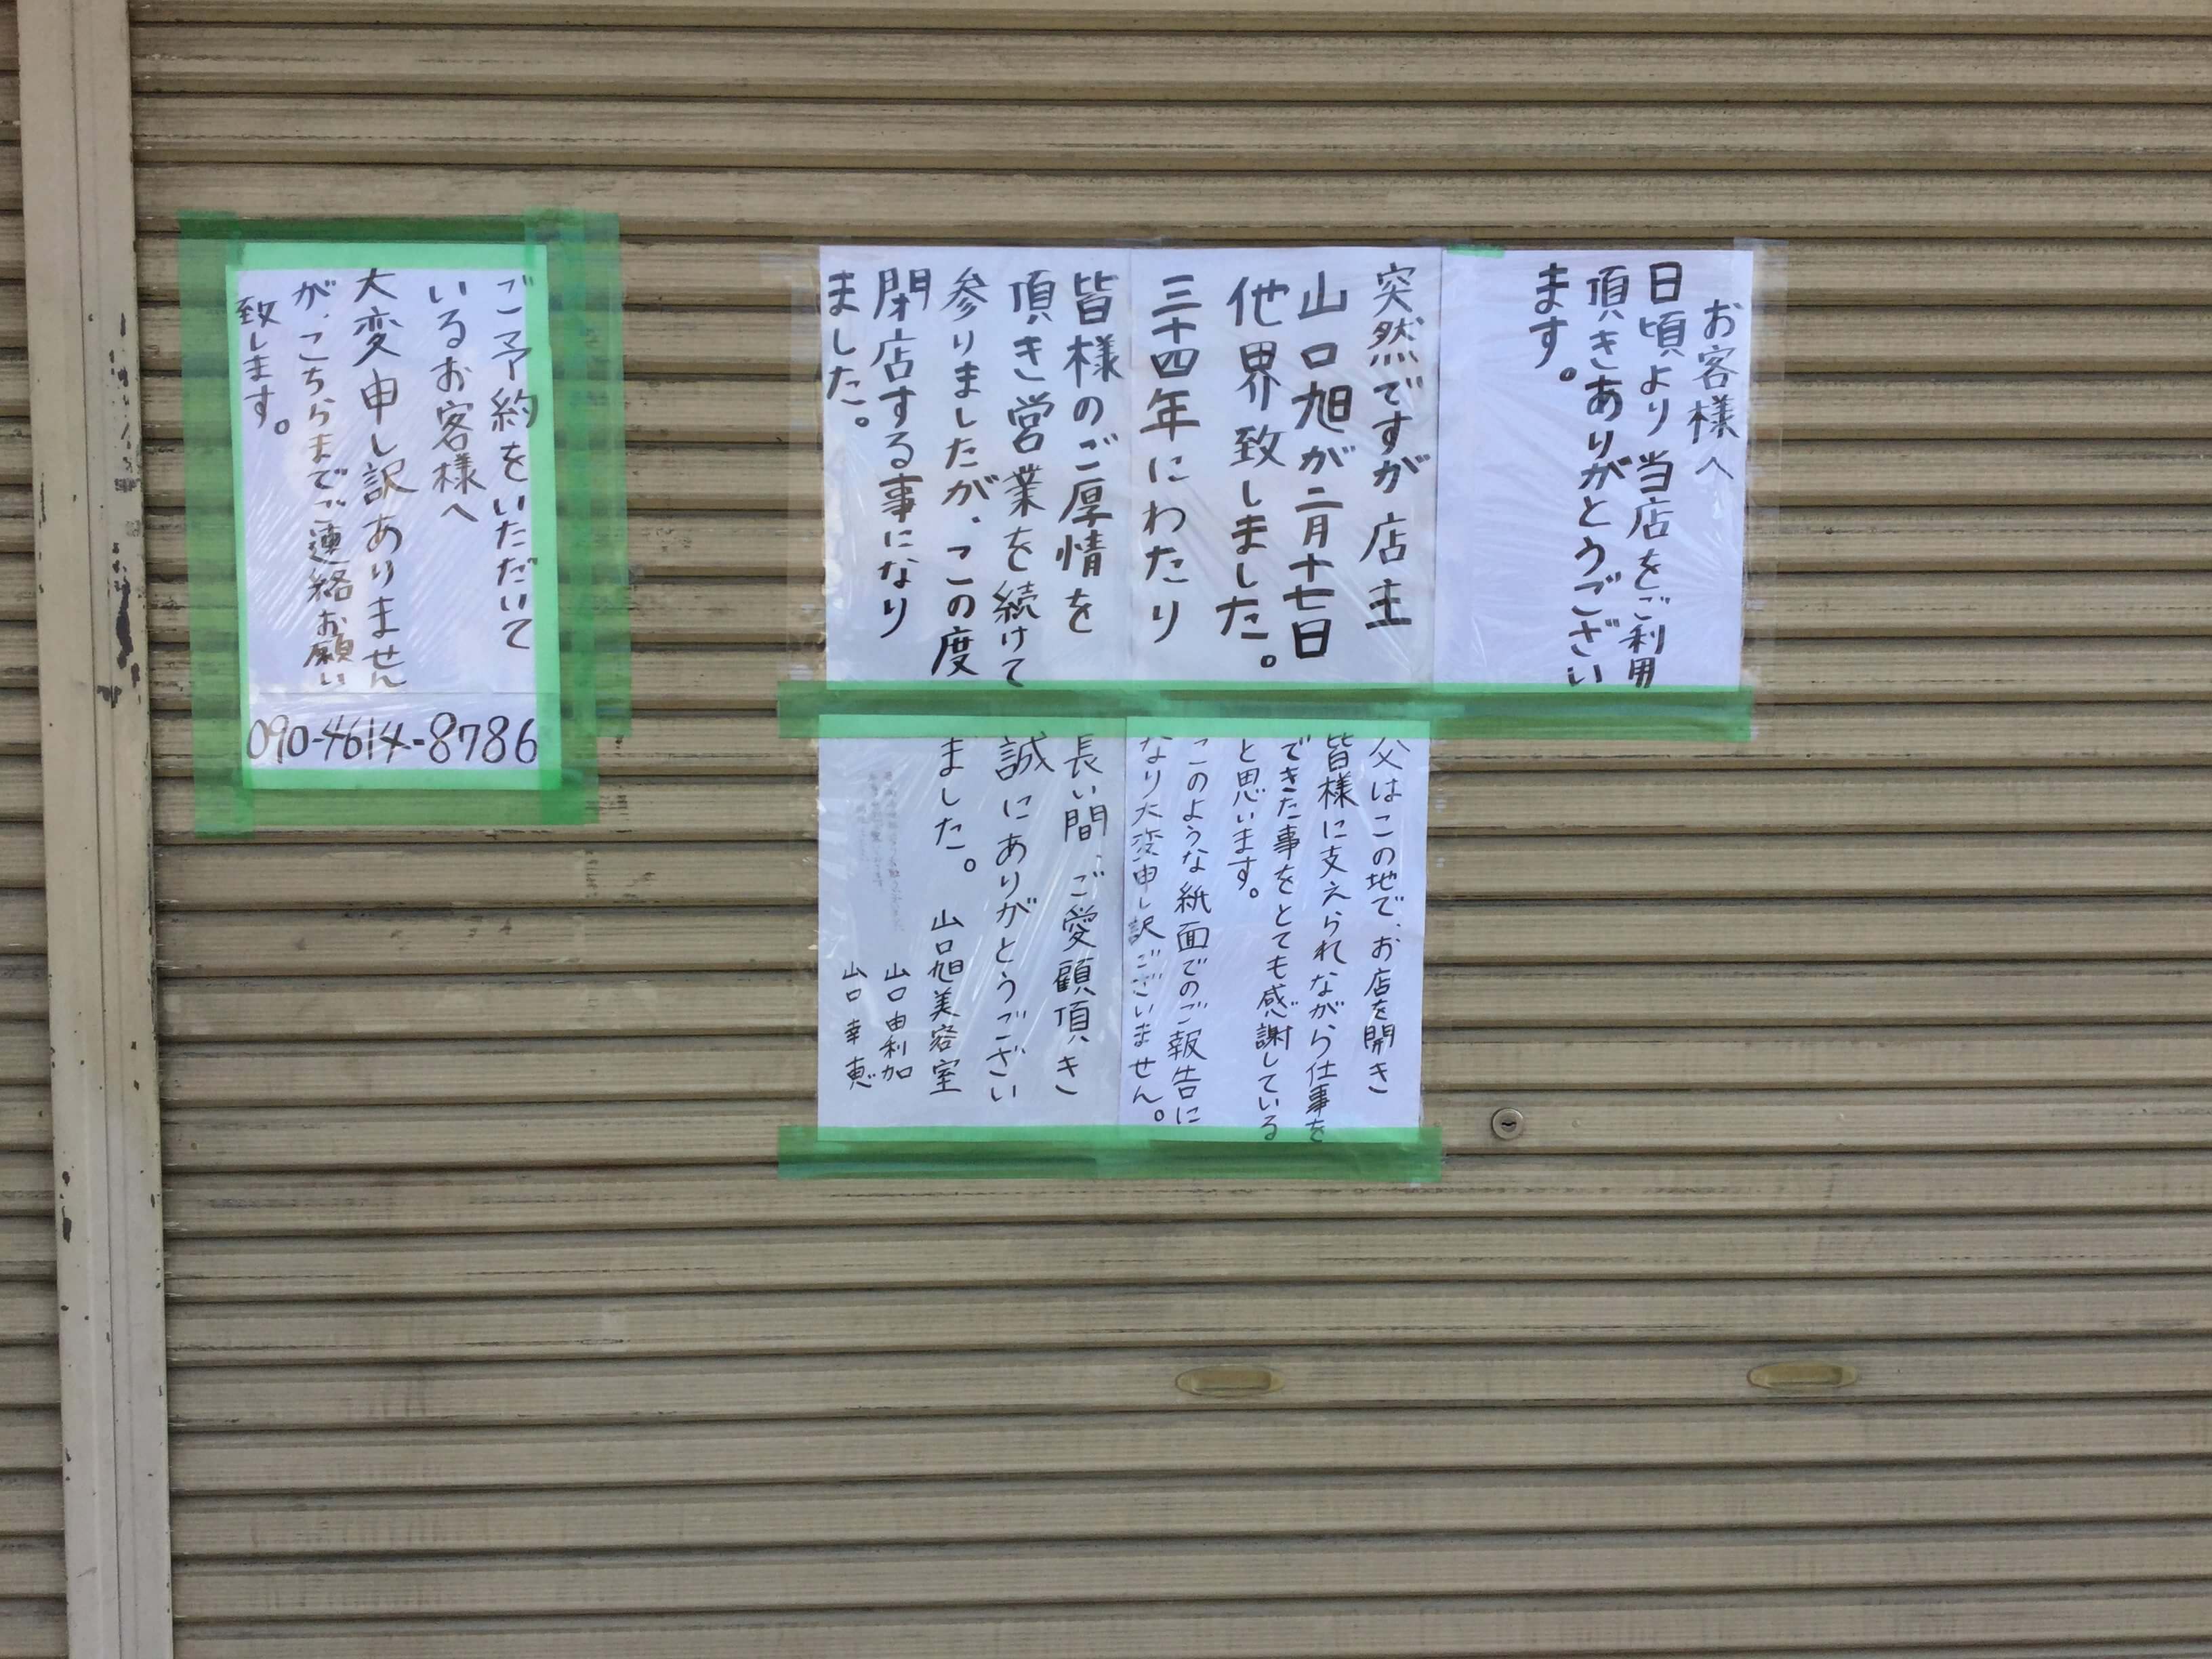 お客様へ
日頃より当店をご利用
頂きありがとうござい
ます。
突然ですが店主
山口旭が二月十七日
他界致しました。
三十四年にわたり
皆様のご厚情を
頂き営業を続けて
参りましたが、この度
閉店する事になり
ました。
父はこの地で、お店を開き
皆様に支えられながら仕事を
できた事をとても感謝している
と思います。
このような紙面でのご報告に
なり大変申し訳ございません。
長い間、ご愛顧頂き
誠にありがとうござい
ました。
山口旭美容室
山口由利加
山口幸恵
ご予約をいただいて
いるお客様へ
大変申し訳ありません
が、こちらまでご連絡お願い
致します。
090-4614-8786